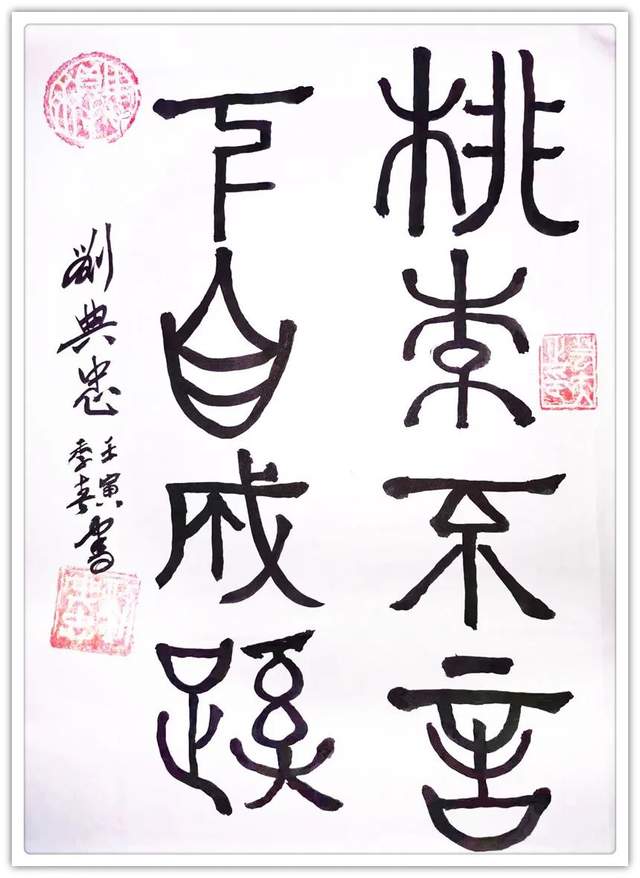 桃李不言
下自成蹊
劉典忠
壬寅
書